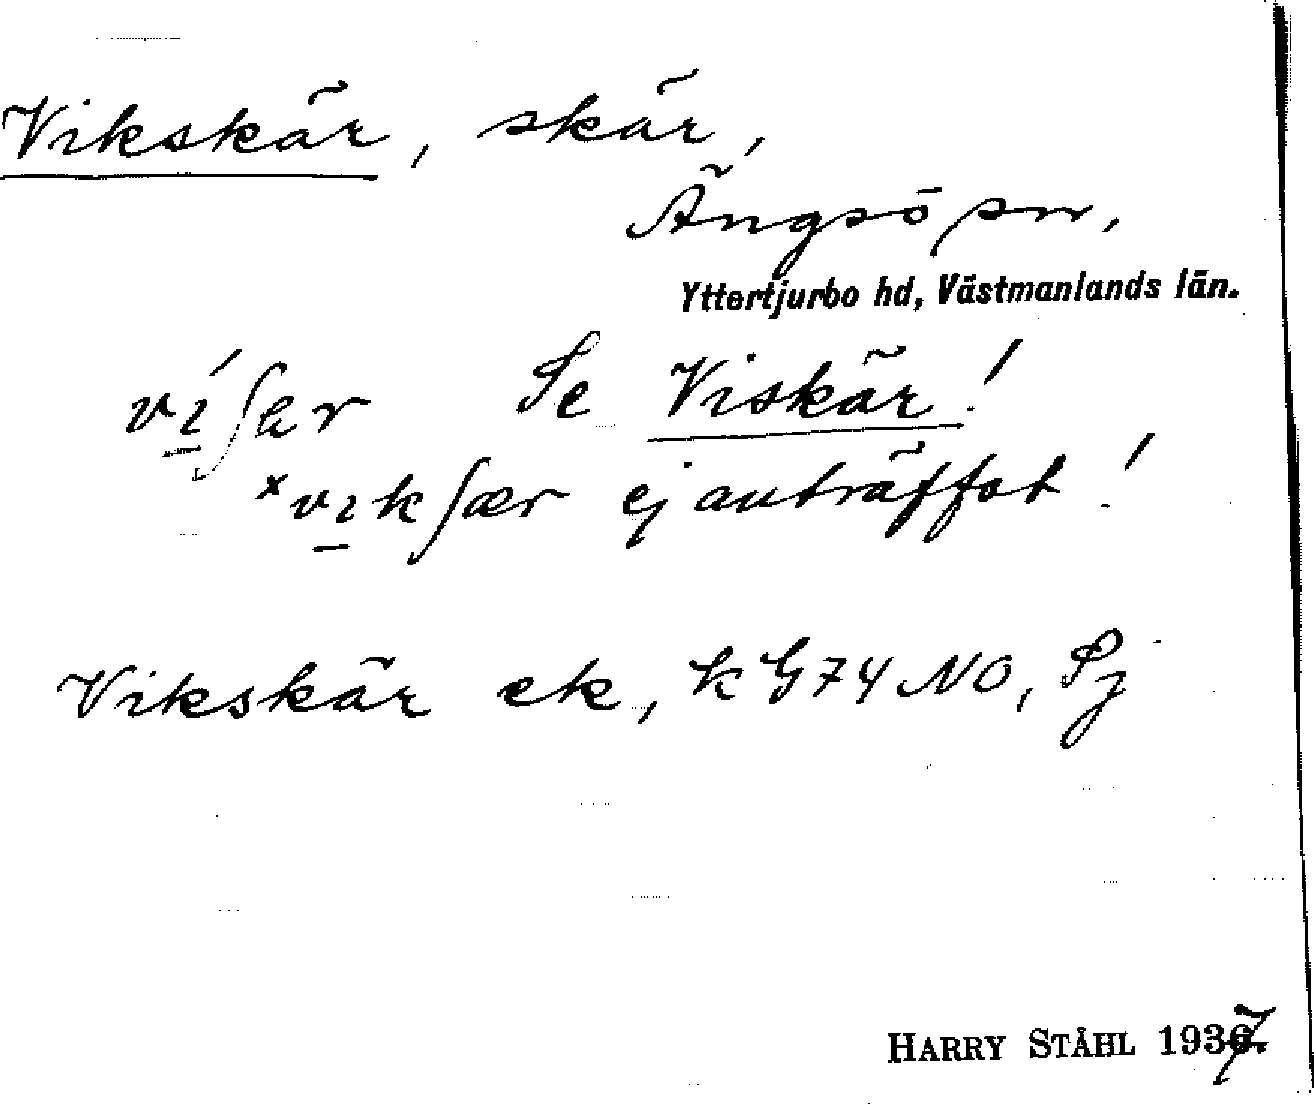 Vikskär, skär,
Ängsö sn,
Yttertjurbo hd, Västmanlands län.
ví̱ʃær Se Viskär!
ˣvi̱kʃær ej anträffat!
Vikskär ek, k G74 NO, Sj
HARRY STÅHL 1937.